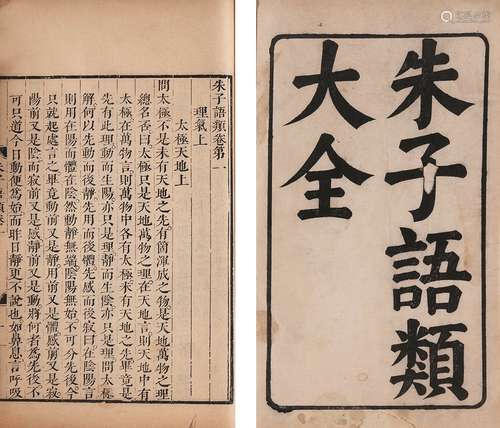 朱子語類
大全
朱子語類卷第一
理氣上
太極天地上
問太極不是未有天地之先有箇渾成之物是天地萬物之理
總名否曰太極只是天地萬物之理在天地言則天地中有
太極在萬物言則萬物中各有太極未有天地之先畢竟是
先有此理動而生陽亦只是理靜而生陰亦只是理問太極
解何以先動而後靜先用而後體先感而後寂曰在陰陽言
則用在陽而體在陰然動靜無端陰陽無始不可分先後今
只就起處言之畢竟動前又是靜用前又是體感前又是寂
陽前又是陰而寂前又是感靜前又是動將何者為先後不
可只道今日動便為始而昨日靜更不說也如鼻息言呼吸